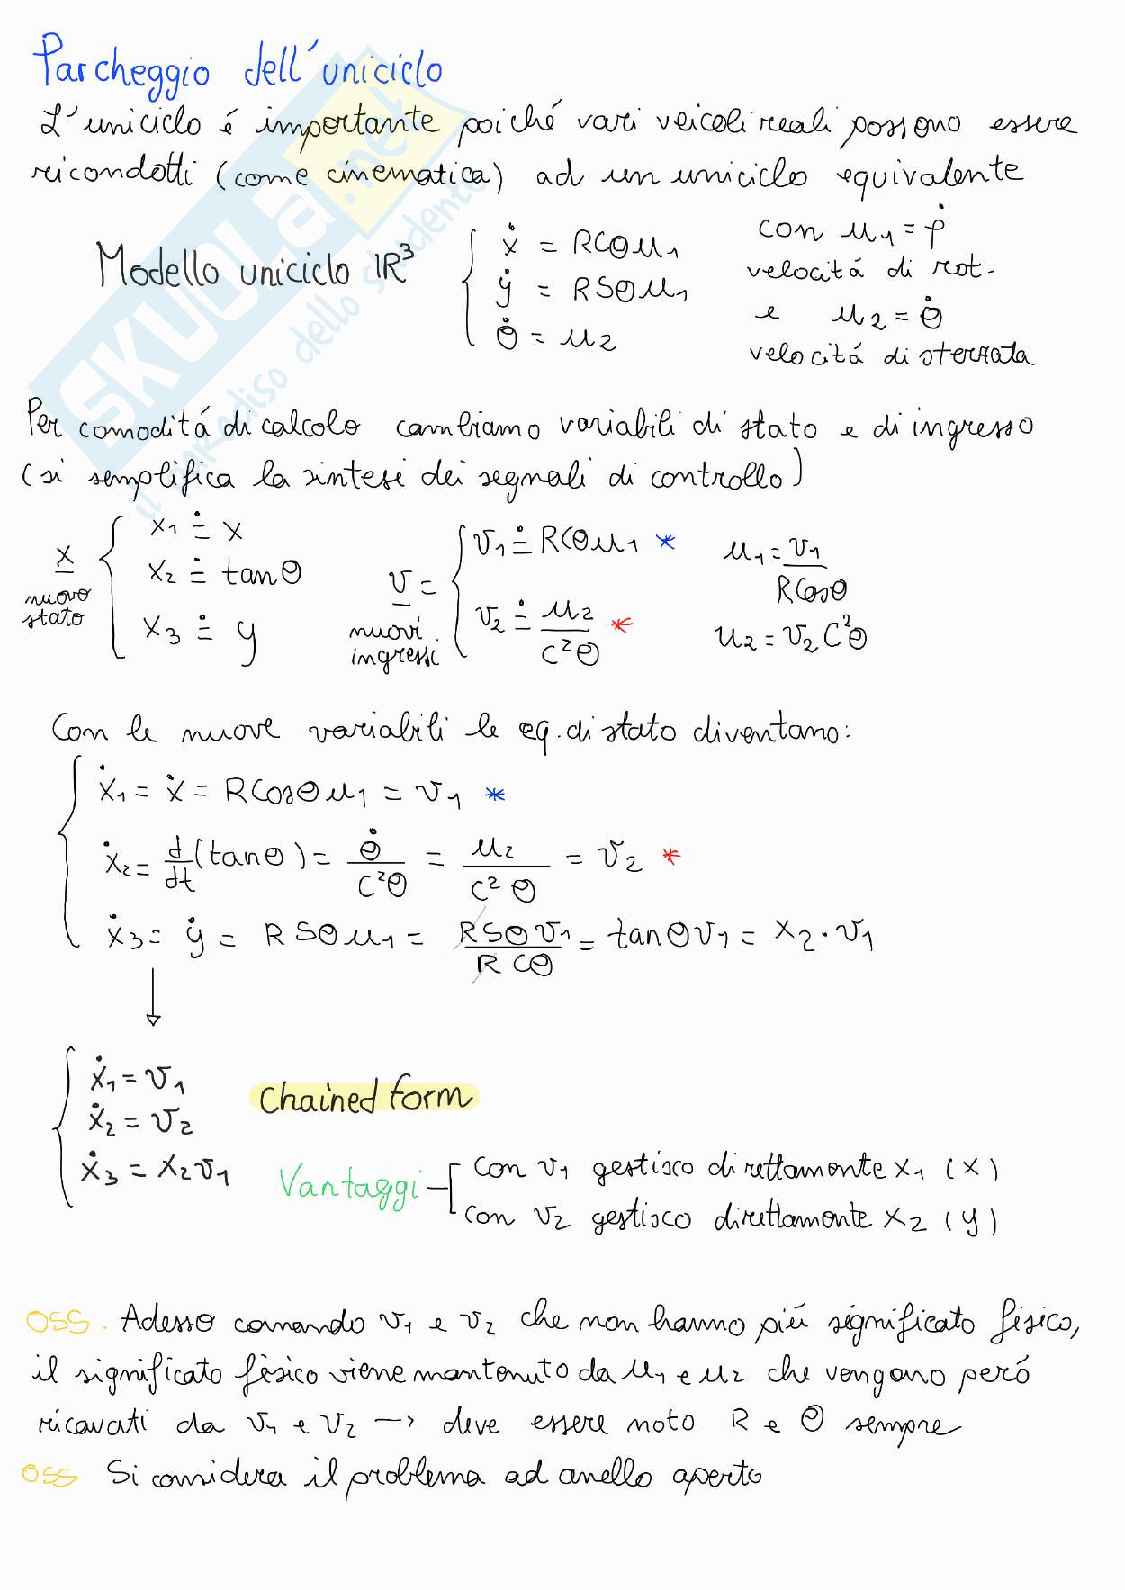 Parcheggio dell'uniciclo
L'uniciclo é importante poiché vari veicoli reali possono essere
ricondotti (come cinematica) ad un uniciclo equivalente
Modello uniciclo ℝ³ { ẋ = RCθu₁
ẏ = RSθu₁
θ̇ = u₂
con u₁ = ρ̇
velocitá di rot.
e u₂ = θ̇
velocitá di sterzata
Per comoditá di calcolo cambiamo variabili di stato e di ingresso
(si semplifica la sintesi dei segnali di controllo)
x nuovo stato { x₁ ≐ x
x₂ ≐ tanθ
x₃ ≐ y
v = nuovi ingressi { v₁ ≐ RCθu₁ *
v₂ ≐ u₂/C²θ *
u₁ = v₁/RCosθ
u₂ = v₂C²θ
Con le nuove variabili le eq. di stato diventano:
ẋ₁ = ẋ = RCosθu₁ = v₁ *
ẋ₂ = d/dt(tanθ) = θ̇/C²θ = u₂/C²θ = v₂ *
ẋ₃ = ẏ = RSθu₁ = RSθv₁/RCθ = tanθv₁ = x₂·v₁
↓
ẋ₁ = v₁
ẋ₂ = v₂
ẋ₃ = x₂v₁
Chained form
Vantaggi
con v₁ gestisco direttamente x₁ (x)
con v₂ gestisco direttamente x₂ (y)
OSS. Adesso comando v₁ e v₂ che non hanno piú significato fisico,
il significato fisico viene mantenuto da u₁ e u₂ che vengano peró
ricavati da v₁ e v₂ → deve essere noto R e θ sempre
OSS Si considera il problema ad anello aperto
SKUOLA.net
il paradiso dello studente